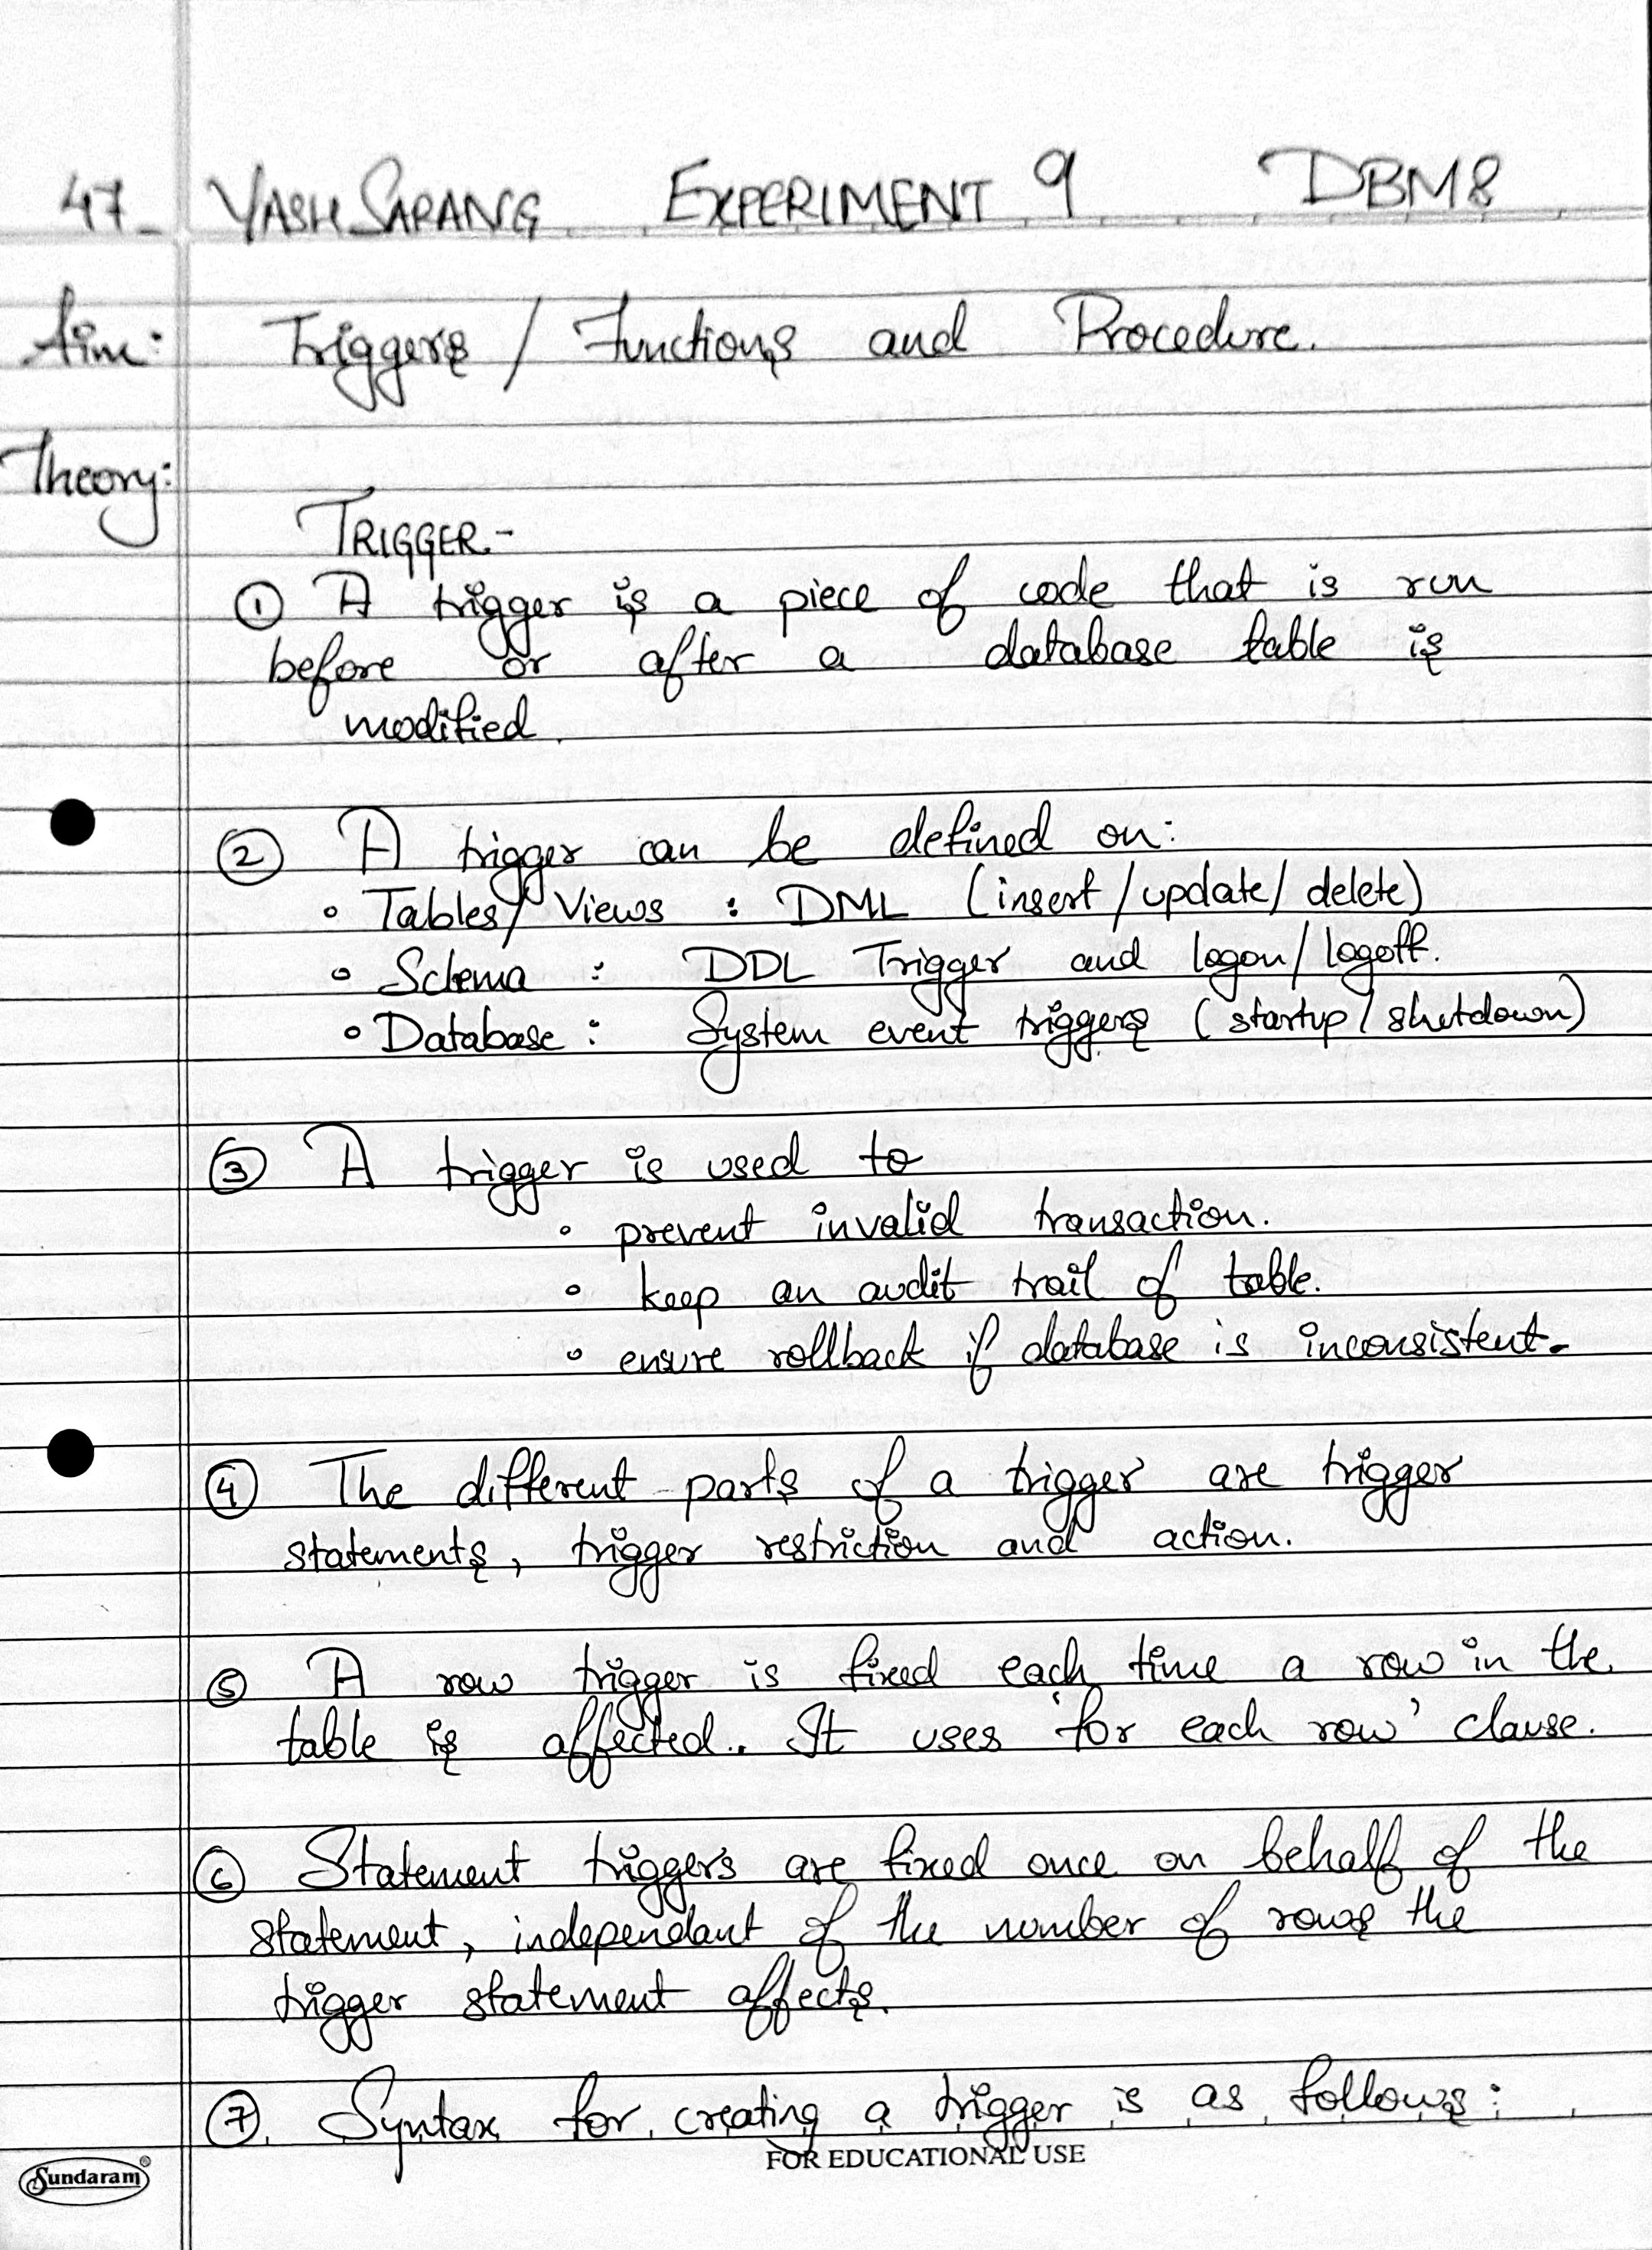 47. YASH SARANG EXPERIMENT 9 DBMS
Aim: Triggers / Functions and Procedure.
Theory:
TRIGGER.-
① A trigger is a piece of code that is run
before or after a database table is
modified.
② A trigger can be defined on:
• Tables/Views : DML (insert/update/delete)
• Schema : DDL Trigger and logon/logoff.
• Database : System event triggers (startup/shutdown)
③ A trigger is used to
• prevent invalid transaction.
• keep an audit trail of table.
• ensure rollback if database is inconsistent.
④ The different parts of a trigger are trigger
statements, trigger restriction and action.
⑤ A row trigger is fixed each time a row in the
table is affected. It uses 'for each row' clause.
⑥ Statement triggers are fixed once on behalf of the
statement, independant of the number of rows the
trigger statement affects.
⑦ Syntax for creating a trigger is as follows:
FOR EDUCATIONAL USE
Sundaram®